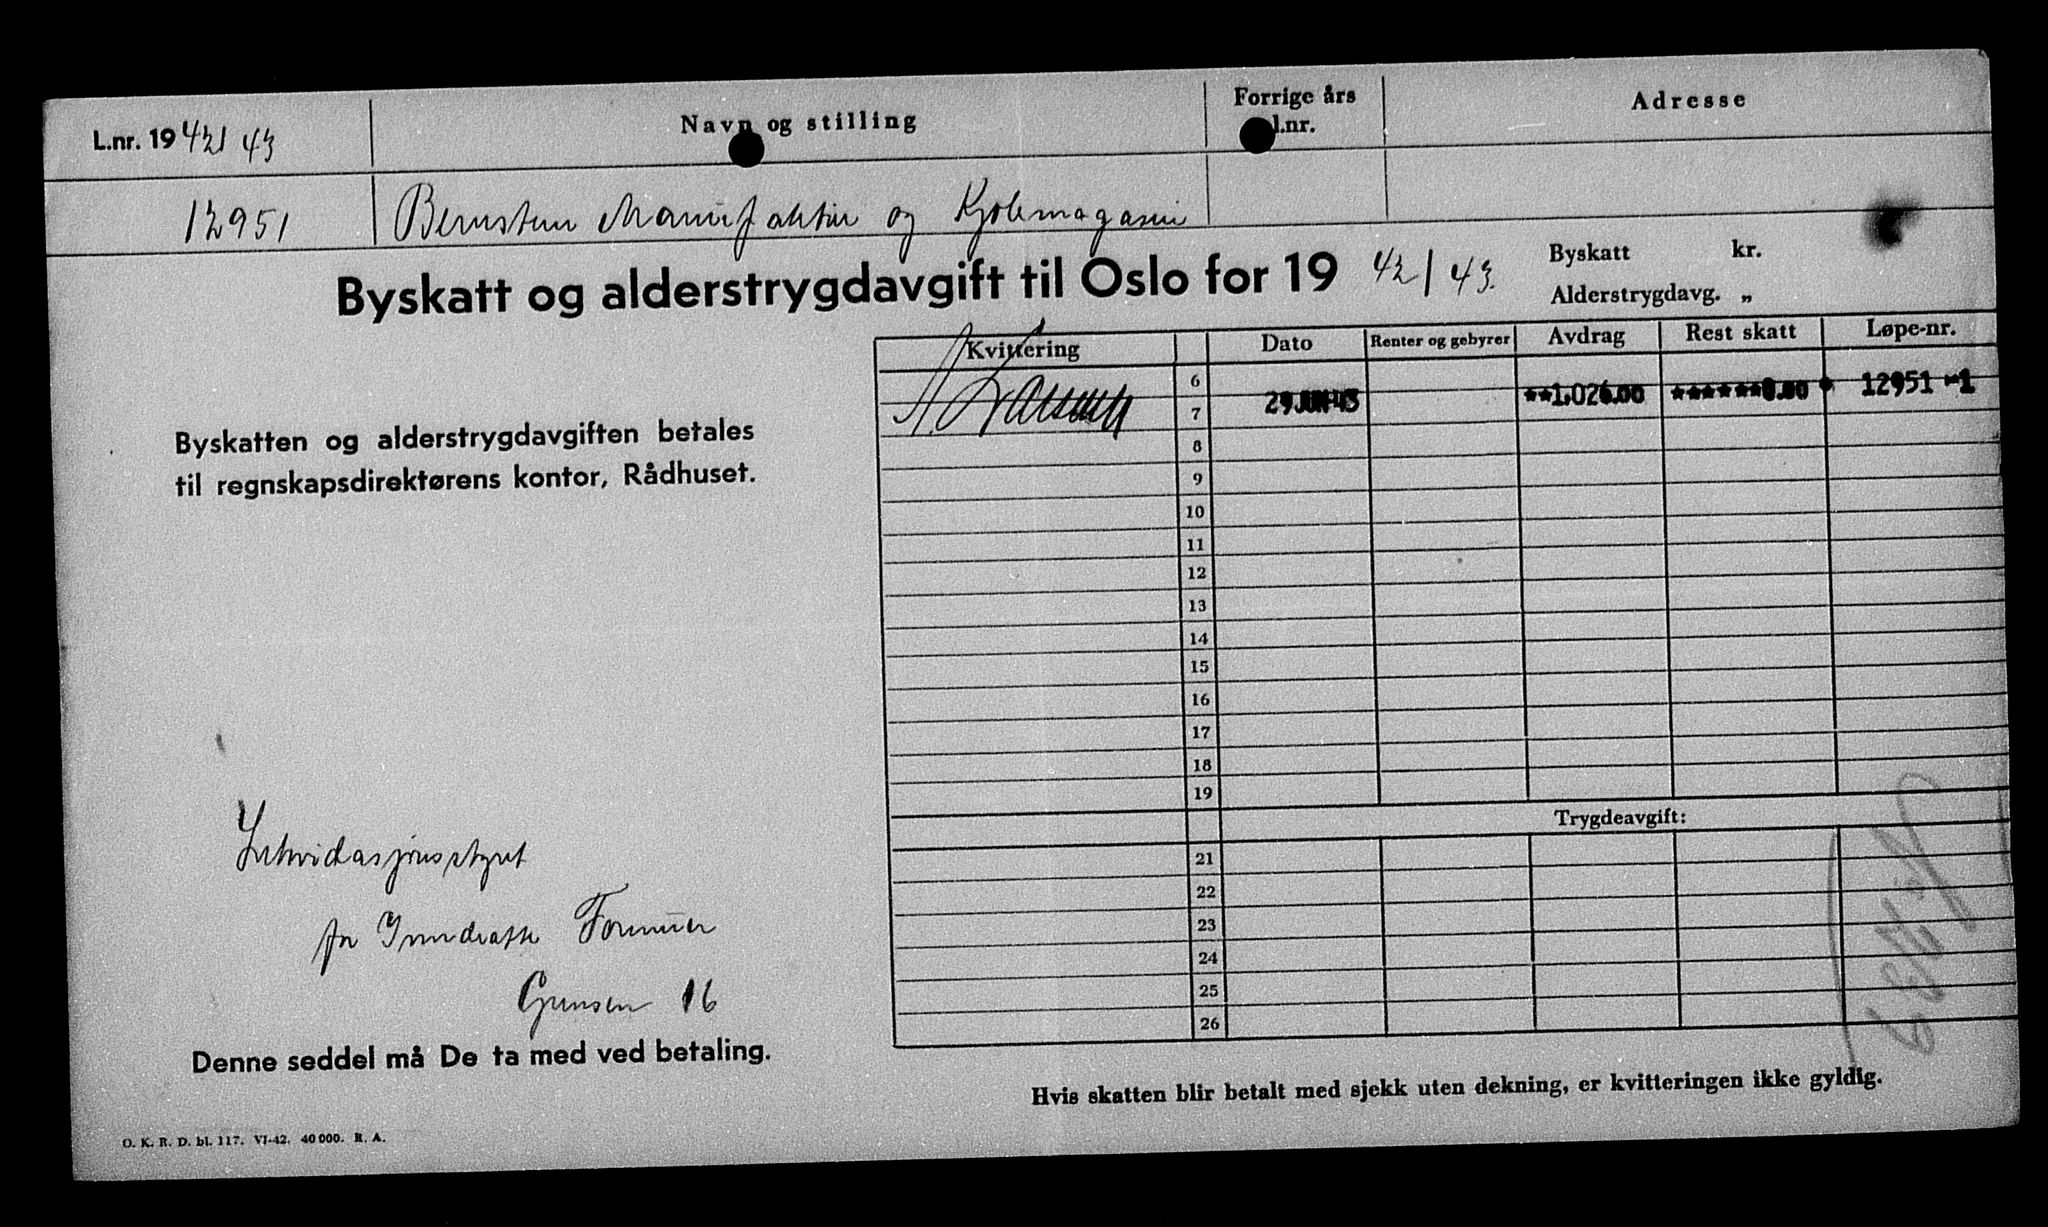 L.nr. 1942/43
Navn og stilling
Forrige års
l.nr.
Adresse
12951
Bernstein Manufaktur og Kjolemagasin
Byskatt og alderstrygdavgift til Oslo for 19 42/43.
Byskatt kr.
Alderstrygdavg. „
Kvittering Dato Renter og gebyrer Avdrag Rest skatt Løpe-nr.
6
A. Larsen 29 JUN 43 **1,026.00 ******0.00 12951 -1
7
8
Byskatten og alderstrygdavgiften betales
til regnskapsdirektørens kontor, Rådhuset.
9
10
11
12
13
14
15
16
17
18
19
Trygdeavgift:
21
22
23
24
25
26
Likvidasjonsstyret
for Inndratte Formuer
Grensen 16
Denne seddel må De ta med ved betaling.
Hvis skatten blir betalt med sjekk uten dekning, er kvitteringen ikke gyldig.
O. K. R. D. bl. 117. VI-42. 40 000. R. A.